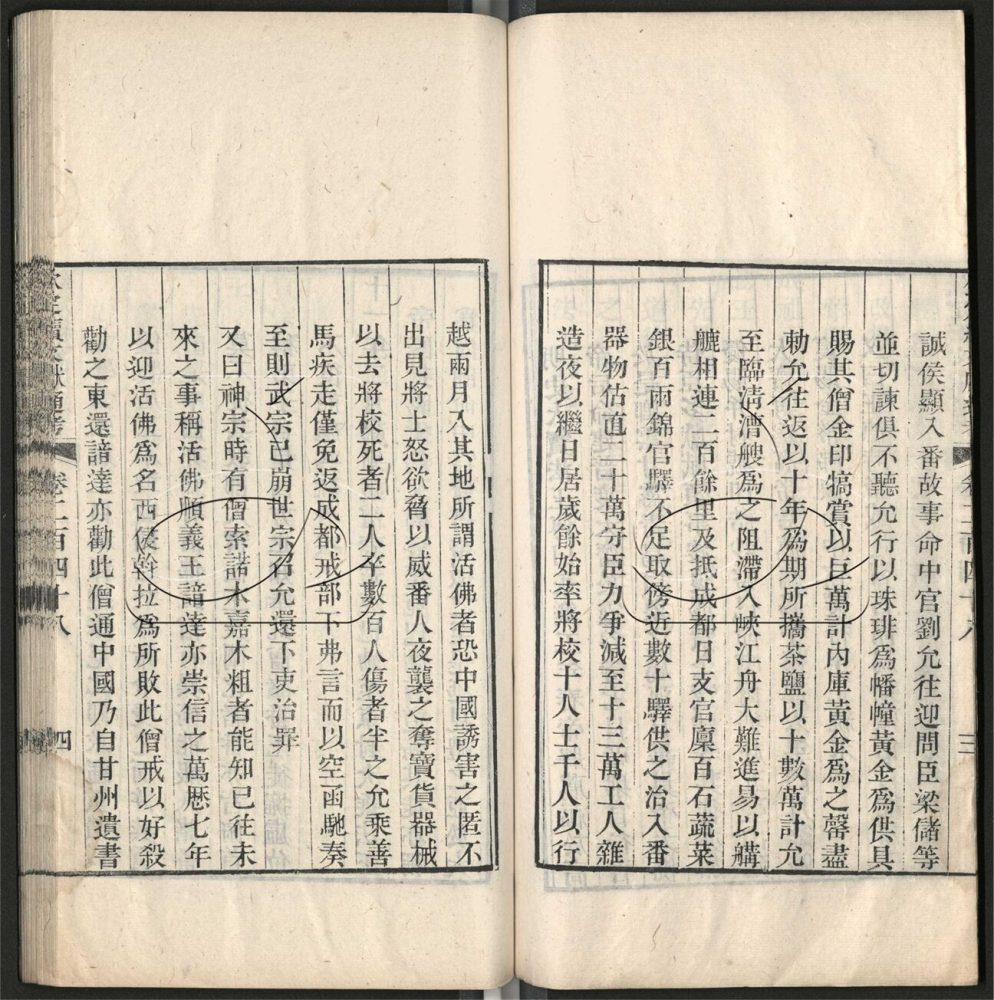 誠侯顯入番故事命中官劉允往迎問臣梁儲等
並切諫俱不聽允行以珠琲爲幡幢黃金爲供具
賜其僧金印犒賞以巨萬計內庫黃金爲之罄盡
勅允往返以十年爲期所攜茶鹽以十數萬計允
至臨清漕艘爲之阻滯入峽江舟大難進易以𦪇
艫相連二百餘里及抵成都日支官廩百石蔬菜
銀百兩錦官驛不足取傍近數十驛供之治入番
器物估直二十萬守臣力爭減至十三萬工人雜
造夜以繼日居歲餘始率將校十人士千人以行
越兩月入其地所謂活佛者恐中國誘害之匿不
出見將士怒欲脅以威番人夜襲之奪寶貨器械
以去將校死者二人卒數百人傷者半之允乘善
馬疾走僅免返成都戒部下弗言而以空函馳奏
至則武宗已崩世宗召允還下吏治罪
又曰神宗時有僧索諾木嘉木粗者能知已往未
來之事稱活佛順義王諳達亦崇信之萬厯七年
以迎活佛爲名西侵斡拉爲所敗此僧戒以好殺
勸之東還諳達亦勸此僧通中國乃自甘州遺書
欽定續文獻通考 卷二百四十八 四